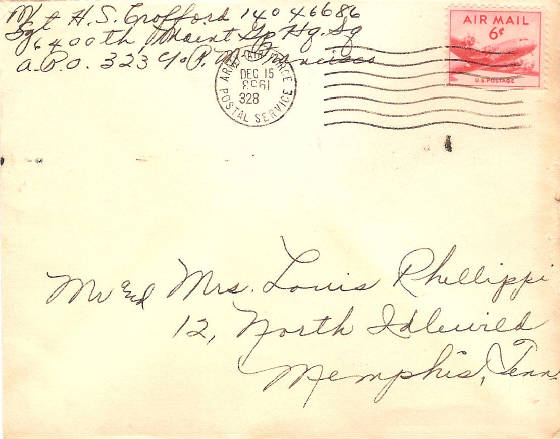 M/Sgt H. S. Crofford 14046686
6400th Maint Gp Hq. Sq
A.P.O. 323 c/o P. M. Francisco
ARMY-AIR FORCE
DEC 15
328
POSTAL SERVICE
AIR MAIL
6¢
U.S. POSTAGE
Mr and Mrs. Louis Phillippi
12, North Idlewild
Memphis, Tenn.